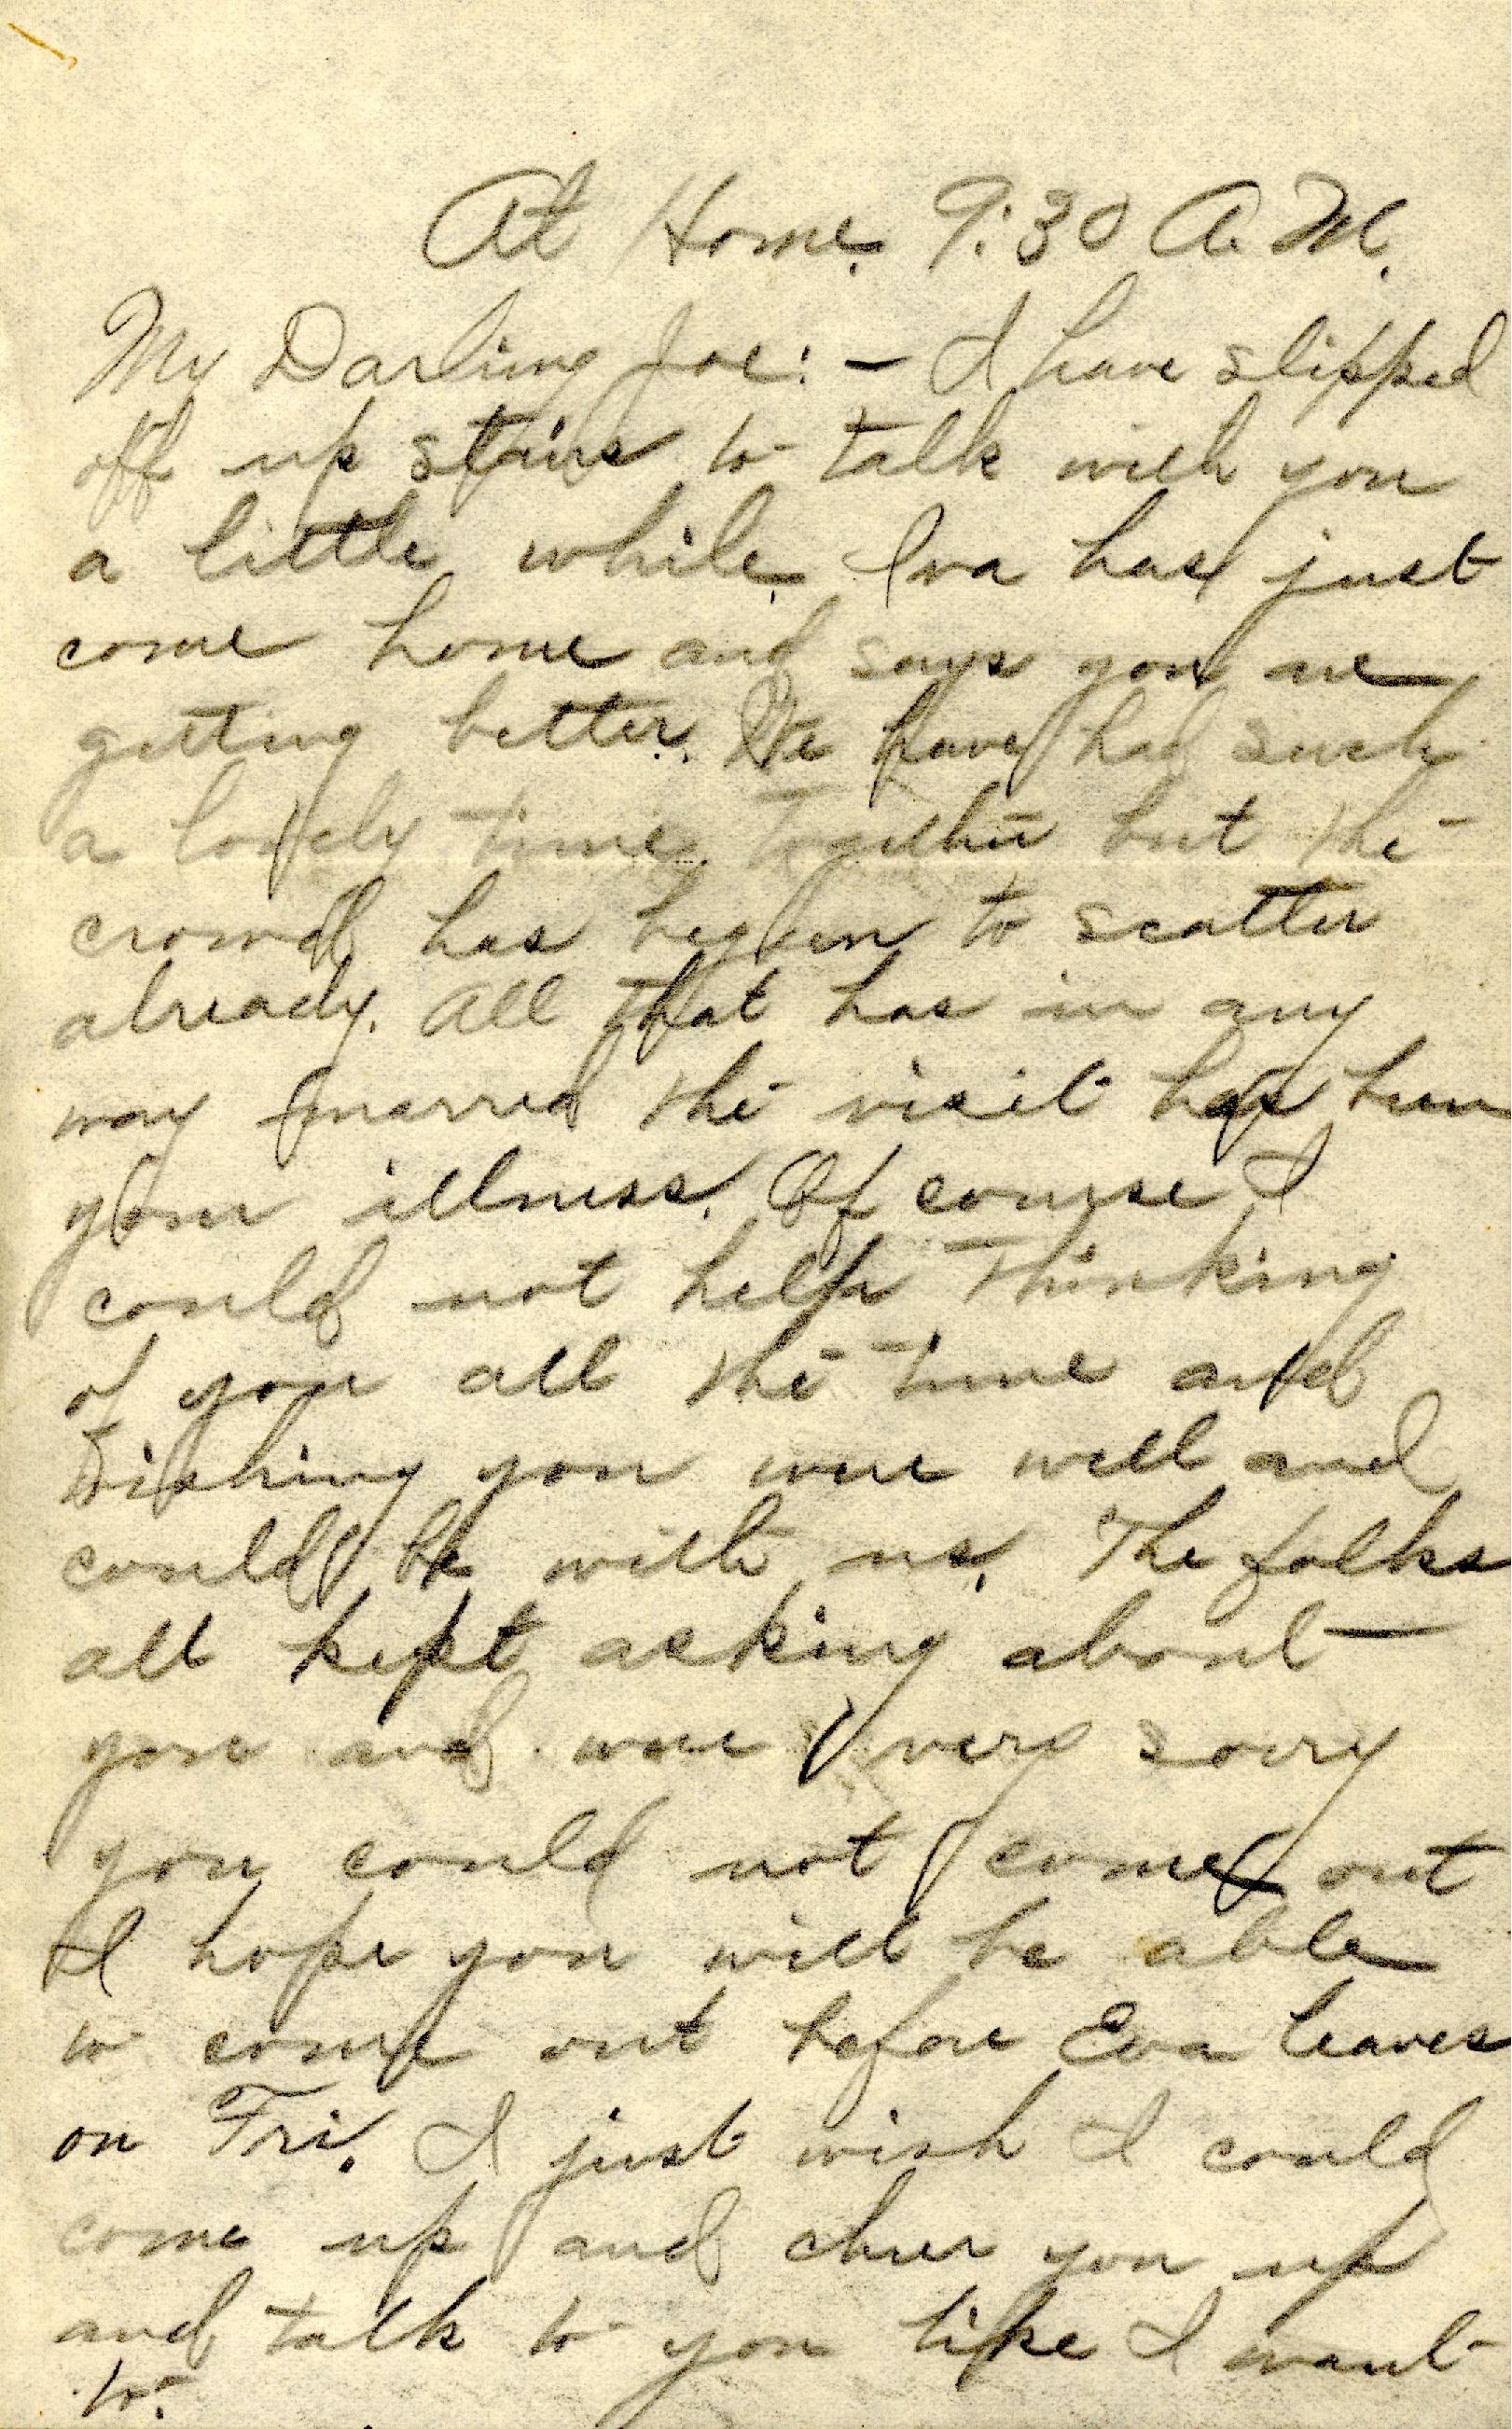 At Home. 9:30 A.M.
My Darling Joe: - I have slipped
off up stairs to talk with you
a little while. Iva has just
come home and says you are
getting better. We have had such
a lovely time together but the
crowd has begun to scatter
already. All that has in any
way marred the visit has been
your illness. Of course I
could not help thinking
of you all the time and
wishing you were well and
could be with us. The folks
all kept asking about
you and were very sorry
you could not come out
I hope you will be able
to come out before Eva leaves
on Fri. I just wish I could
come up and cheer you up
and talk to you like I want
to.